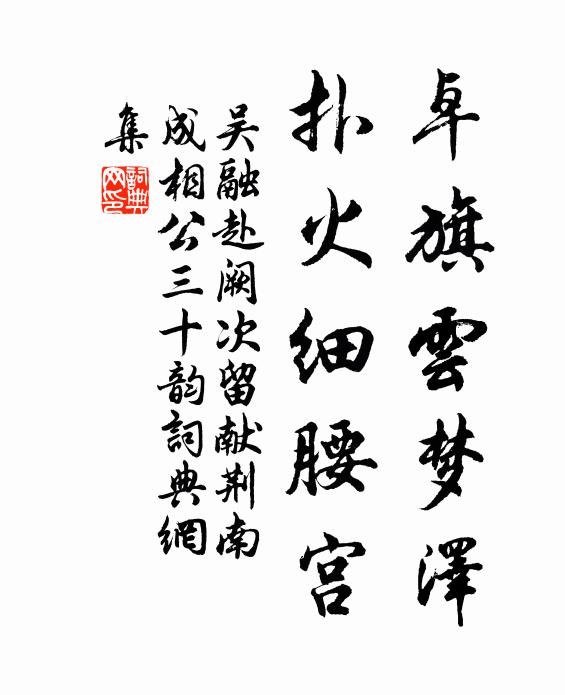 卓旗雲梦澤
扑火细腰宫
吴融赴阙次留献荆南
成相公三十韵詞典網
集
詞典
网印